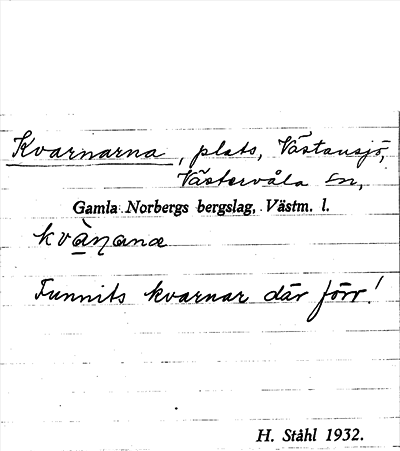 Kvarnarna, plats, Västansjö,
Västervåla sn,
Gamla Norbergs bergslag, Västm. l.
kvàɳana
Funnits kvarnar där förr!
H. Ståhl 1932.